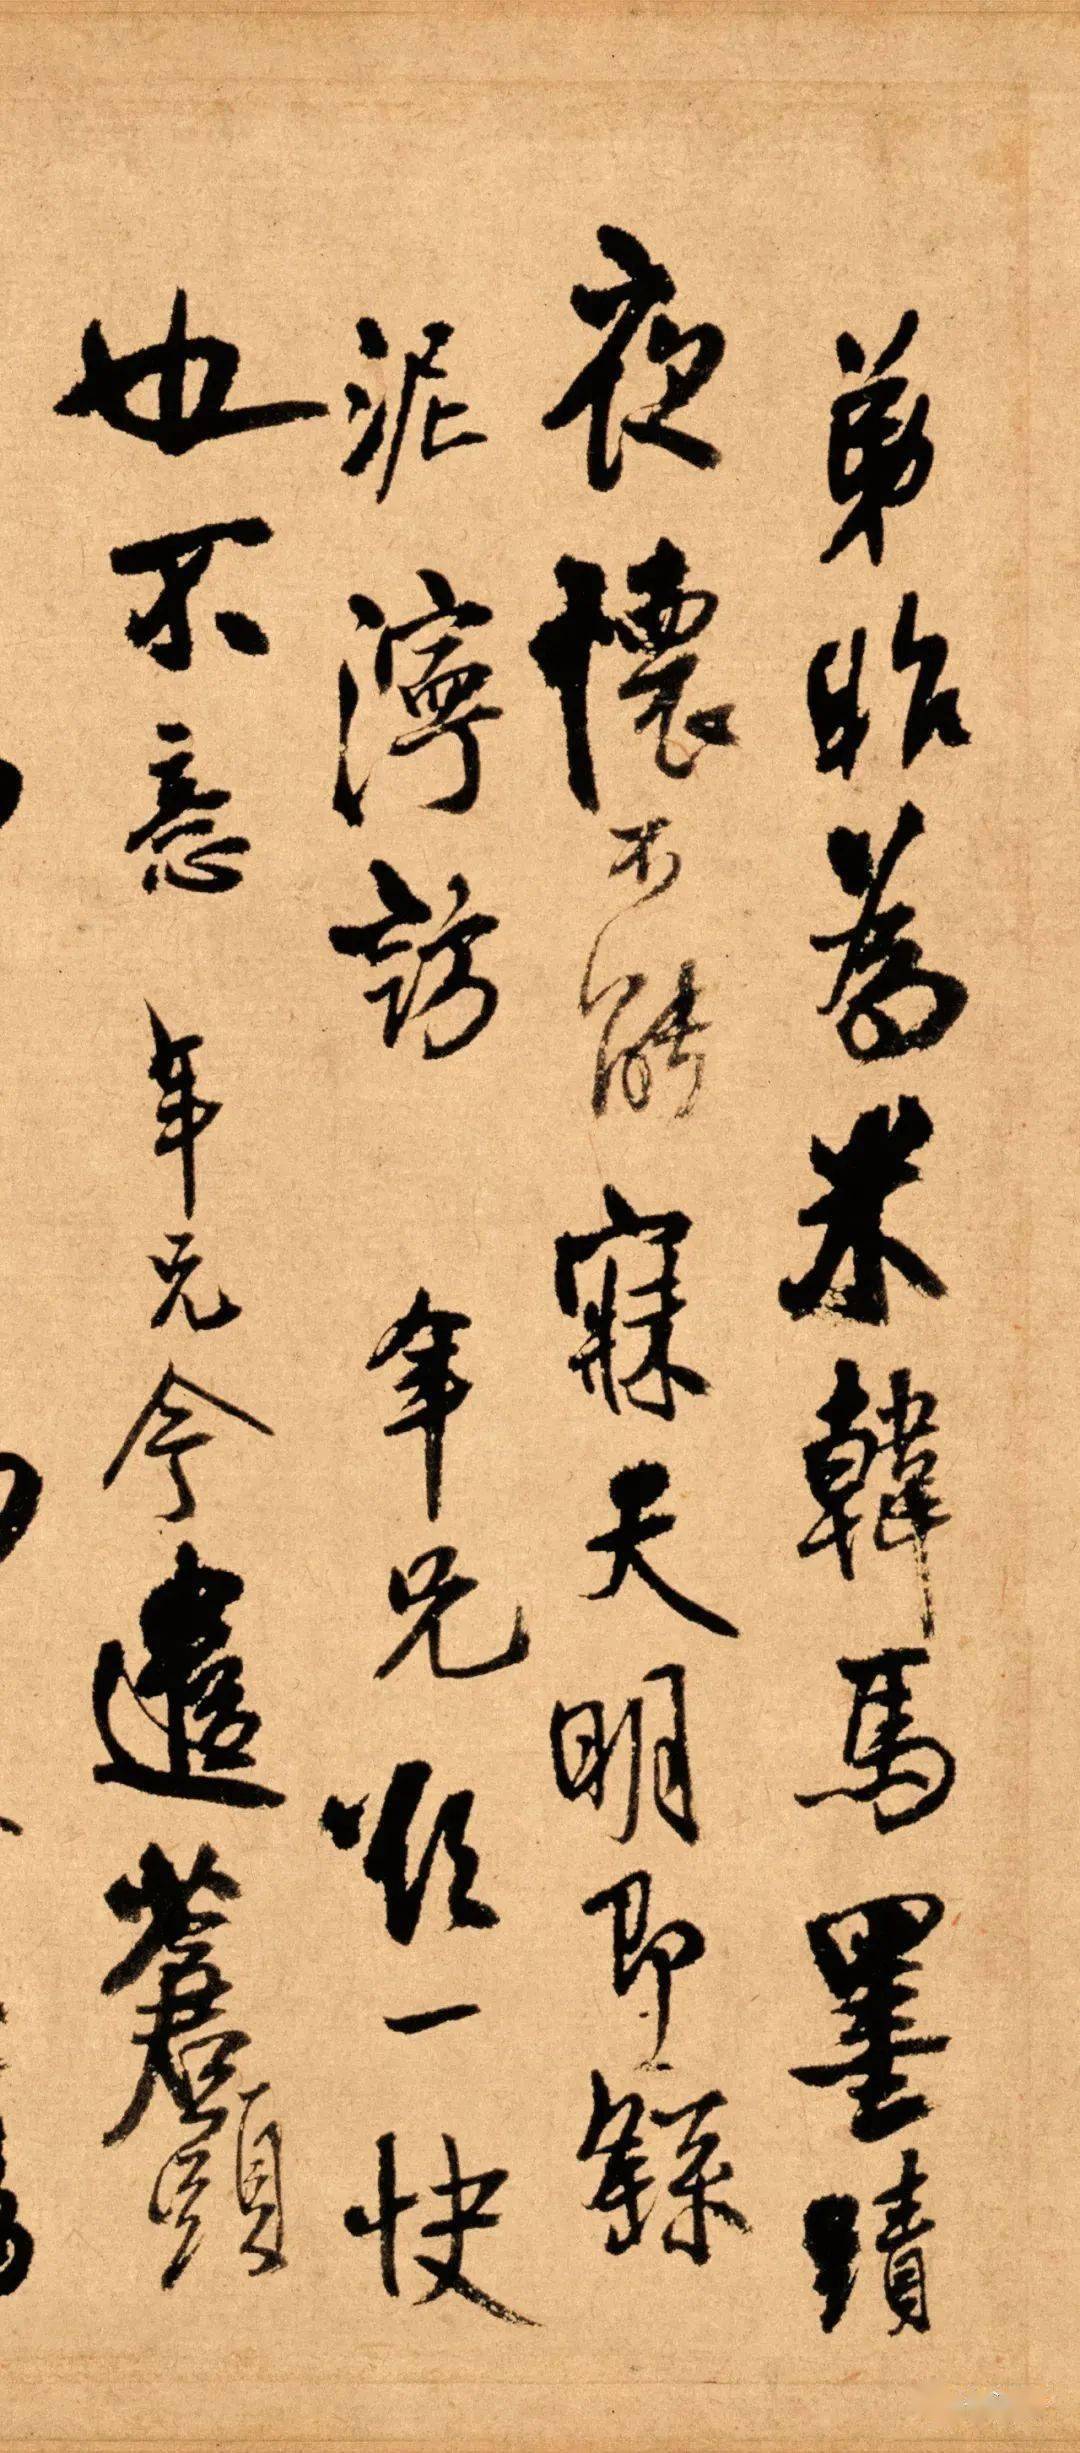 弟昨為米韓馬墨蹟
夜懷不能寐天明即繇
泥濘訪 年兄一快
也不意 年兄今遣蒼頭